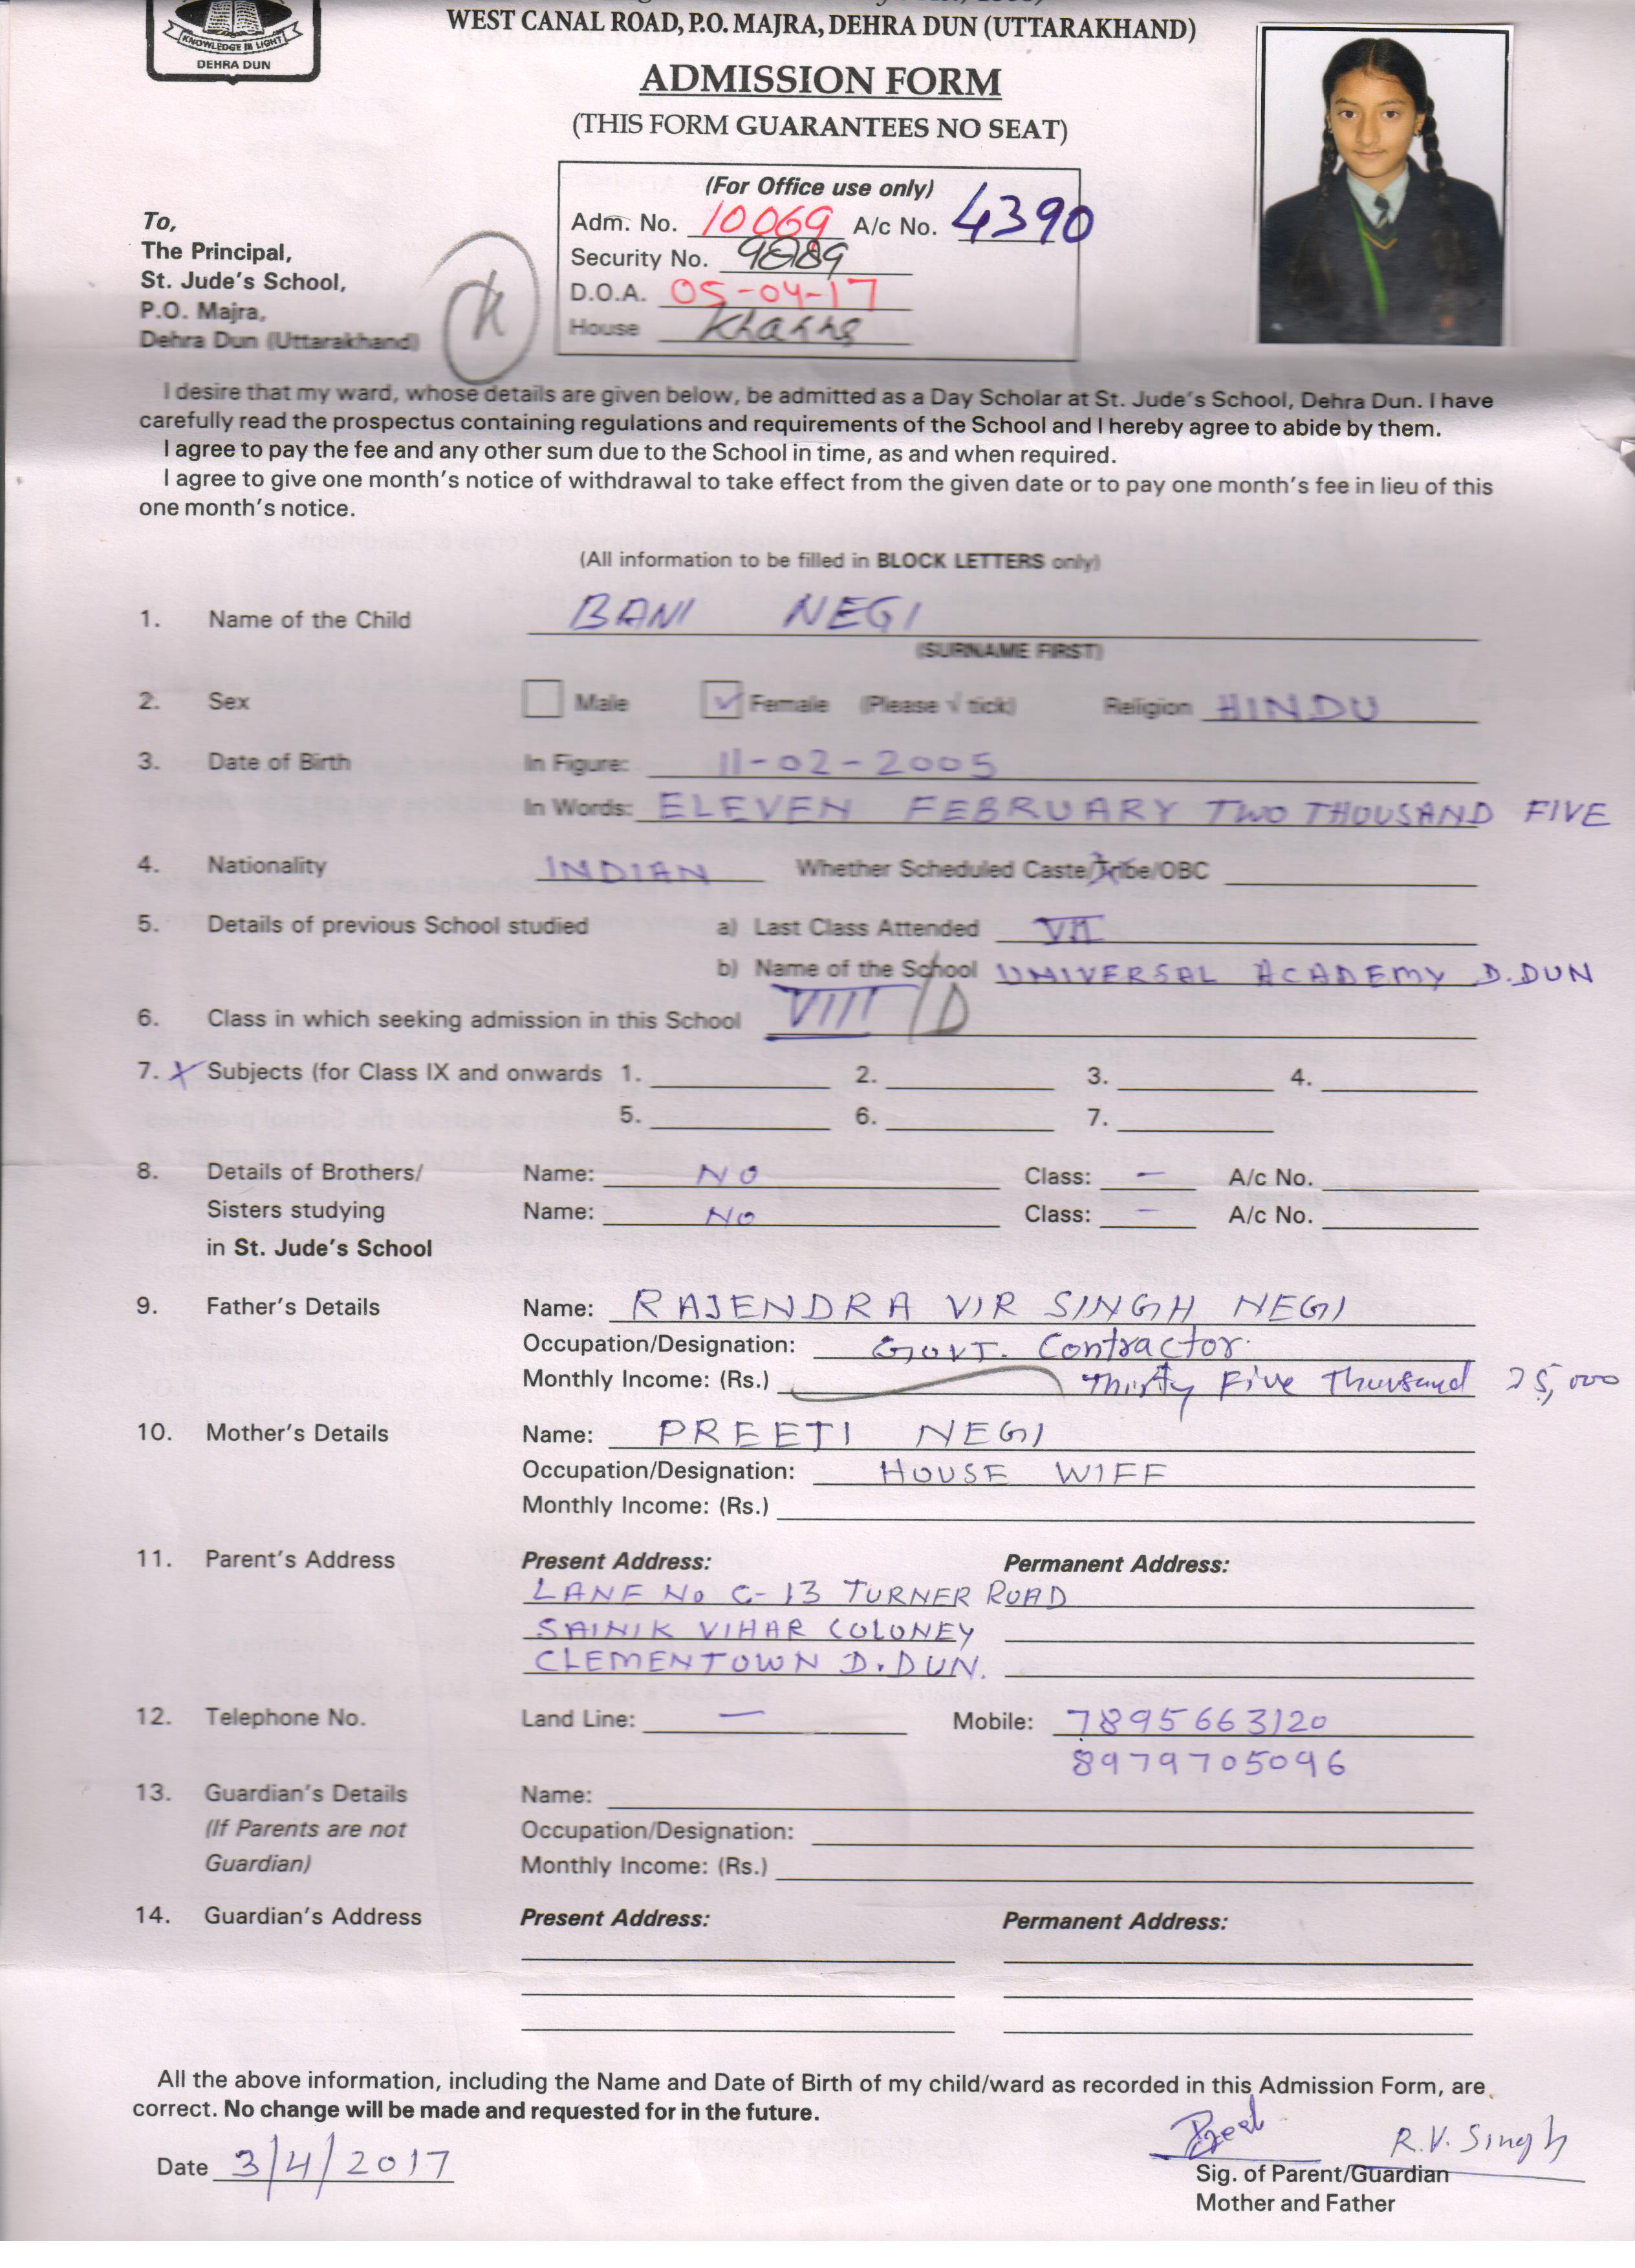 KNOWLEDGE IS LIGHT
DEHRA DUN
WEST CANAL ROAD, P.O. MAJRA, DEHRA DUN (UTTARAKHAND)
ADMISSION FORM
(THIS FORM GUARANTEES NO SEAT)
(For Office use only)
Adm. No. 10069 A/c No. 4390
Security No.
D.O.A. 05-04-17
House
To,
The Principal,
St. Jude's School,
P.O. Majra,
Dehra Dun (Uttarakhand)
I desire that my ward, whose details are given below, be admitted as a Day Scholar at St. Jude's School, Dehra Dun. I have
carefully read the prospectus containing regulations and requirements of the School and I hereby agree to abide by them.
I agree to pay the fee and any other sum due to the School in time, as and when required.
I agree to give one month's notice of withdrawal to take effect from the given date or to pay one month's fee in lieu of this
one month's notice.
(All information to be filled in BLOCK LETTERS only)
1. Name of the Child BANI NEGI
(SURNAME FIRST)
2. Sex Male ✓ Female (Please √ tick) Religion HINDU
3. Date of Birth In Figure: 11-02-2005
In Words: ELEVEN FEBRUARY TWO THOUSAND FIVE
4. Nationality INDIAN Whether Scheduled Caste/Tribe/OBC
5. Details of previous School studied a) Last Class Attended VII
b) Name of the School UNIVERSAL ACADEMY D.DUN
6. Class in which seeking admission in this School VIII/D
7. X Subjects (for Class IX and onwards 1. 2. 3. 4.
5. 6. 7.
8. Details of Brothers/ Name: NO Class: — A/c No.
Sisters studying Name: NO Class: — A/c No.
in St. Jude's School
9. Father's Details Name: RAJENDRA VIR SINGH NEGI
Occupation/Designation: GOVT. Contractor.
Monthly Income: (Rs.) Thirty Five Thousand
10. Mother's Details Name: PREETI NEGI
Occupation/Designation: HOUSE WIFE
Monthly Income: (Rs.)
11. Parent's Address Present Address: Permanent Address:
LANE No C-13 TURNER ROAD
SAINIK VIHAR COLONEY
CLEMENTOWN D.DUN.
12. Telephone No. Land Line: — Mobile: 7895663120
8979705096
13. Guardian's Details Name:
(If Parents are not Occupation/Designation:
Guardian) Monthly Income: (Rs.)
14. Guardian's Address Present Address: Permanent Address:
All the above information, including the Name and Date of Birth of my child/ward as recorded in this Admission Form, are
correct. No change will be made and requested for in the future.
R.V. Singh
Date 3/4/2017
Sig. of Parent/Guardian
Mother and Father